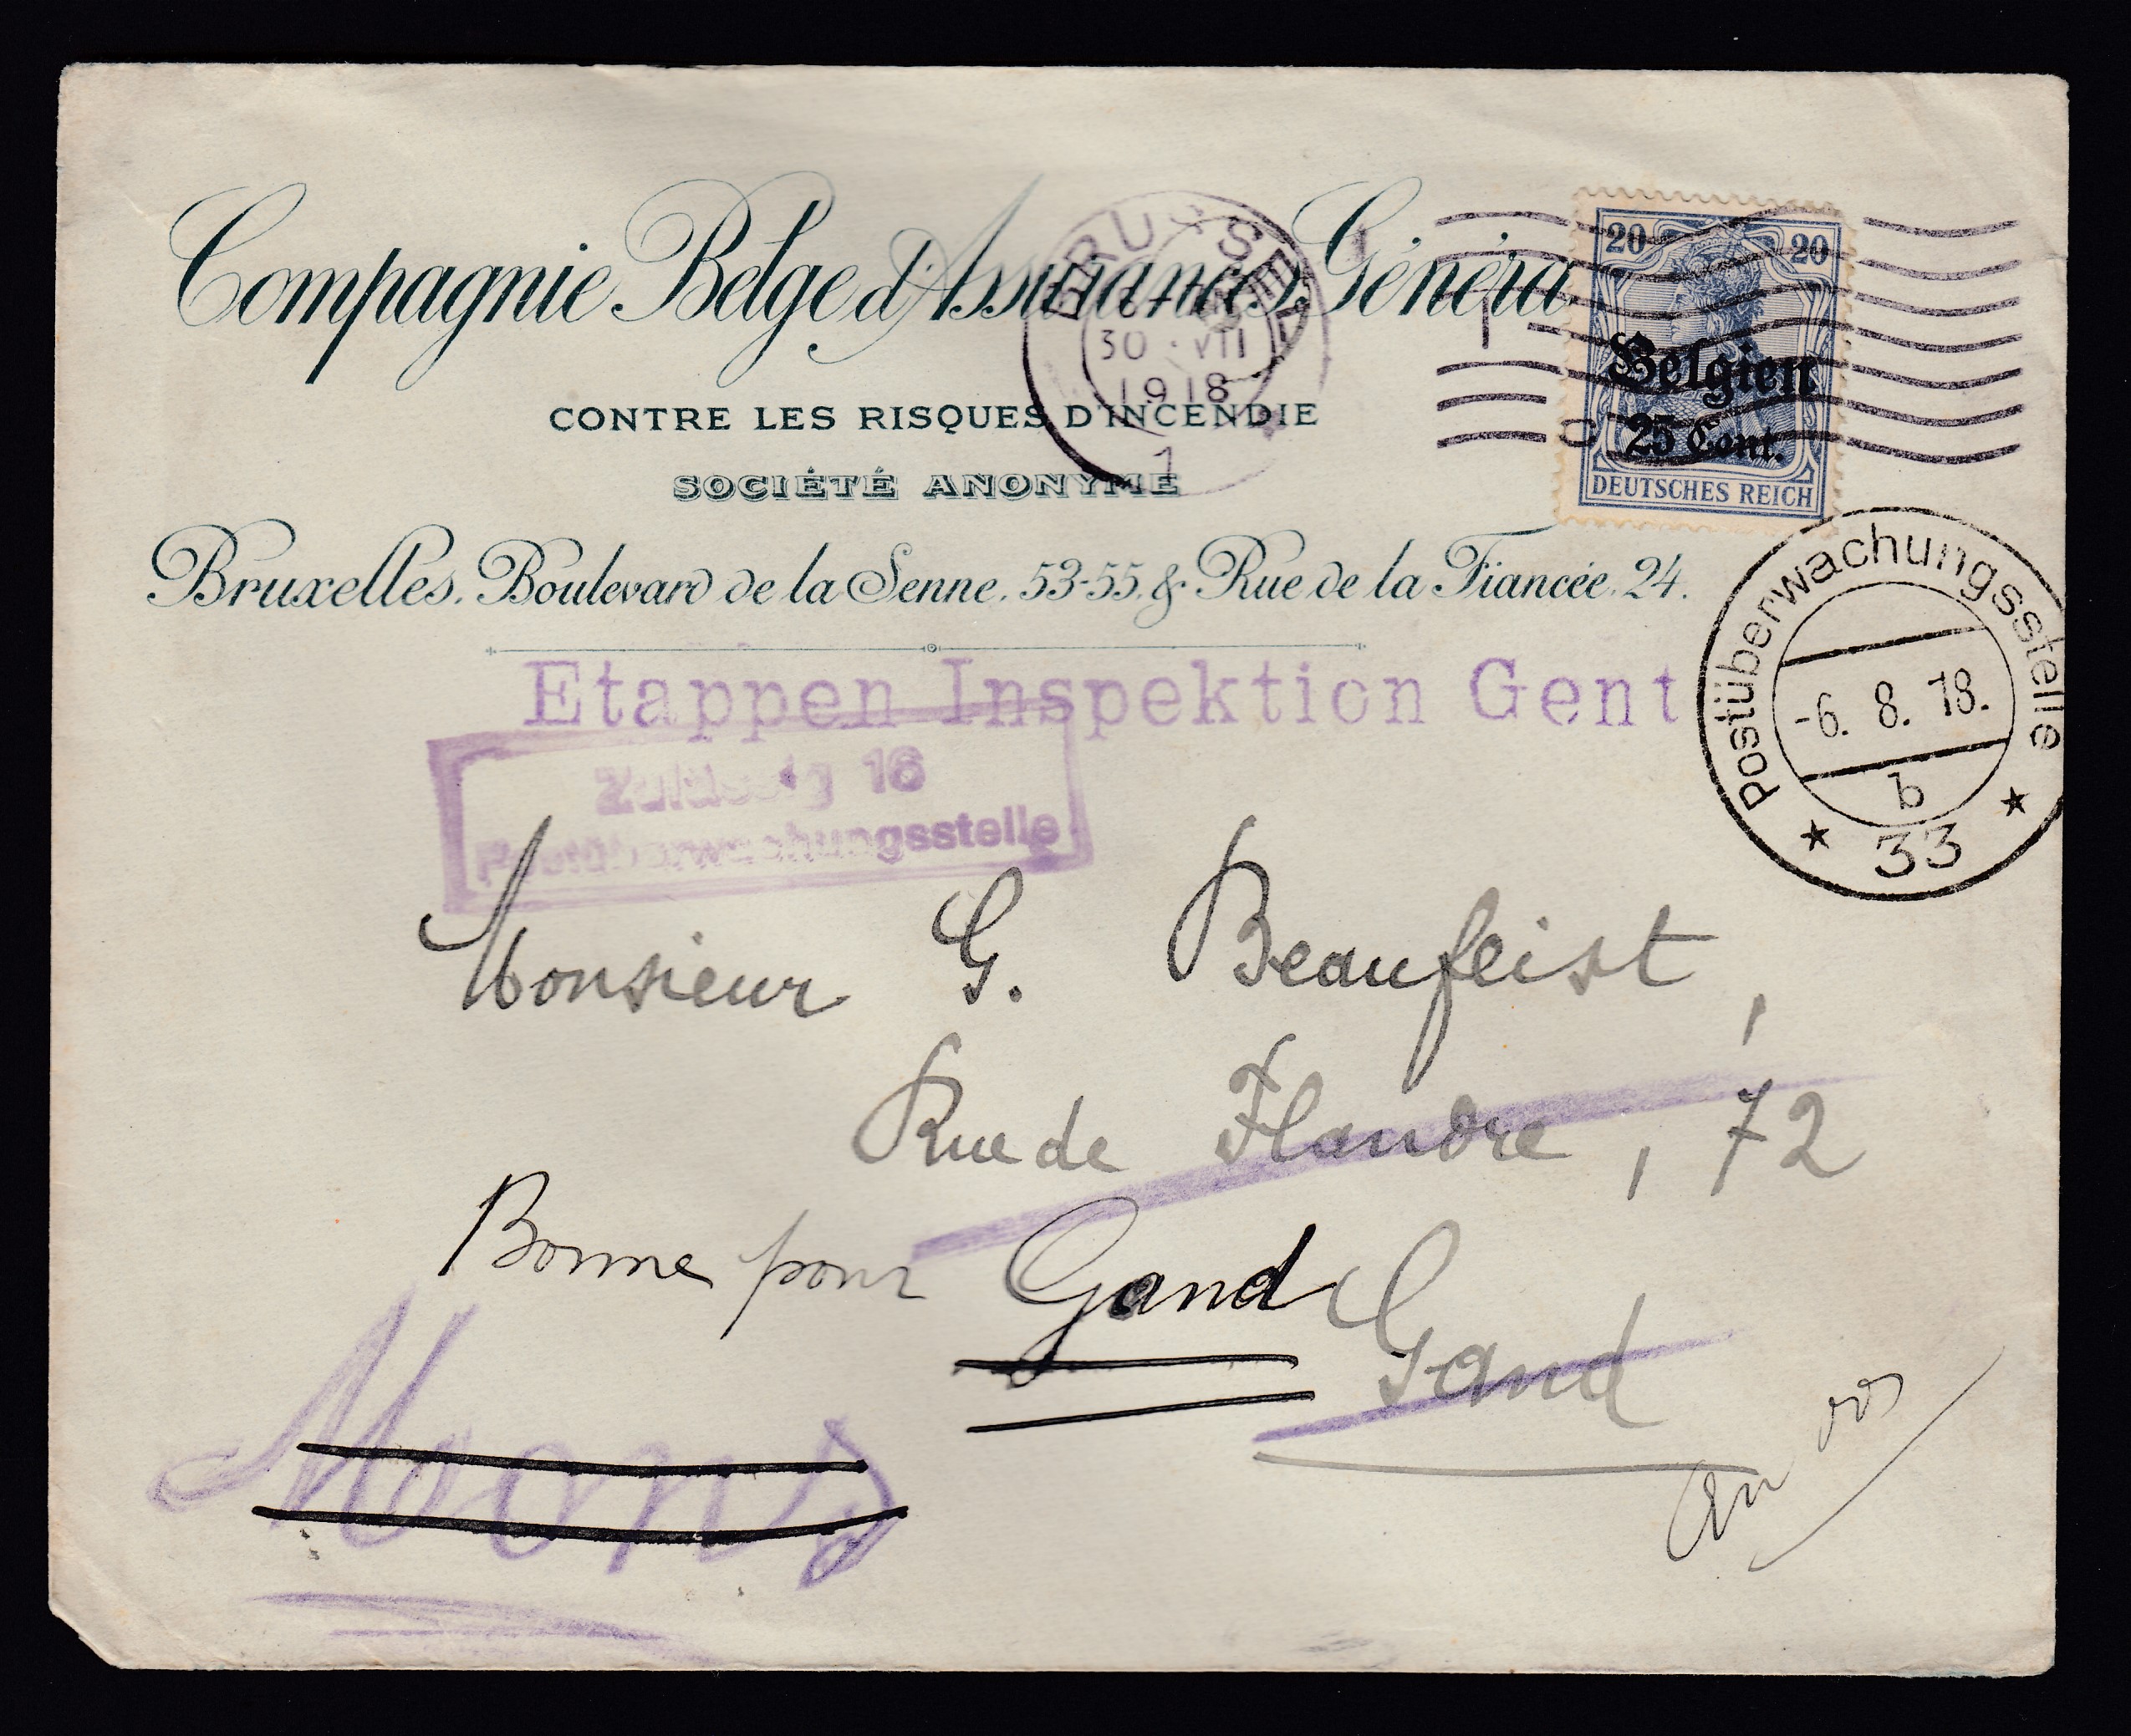 Compagnie Belge d'Assurances Généra
CONTRE LES RISQUES D'INCENDIE
SOCIÉTÉ ANONYME
Bruxelles, Boulevard de la Senne, 53-55, & Rue de la Fiancée, 24.
BRUXSEL
30 · VII
1918
1
20 20
Belgien
25 Cent.
DEUTSCHES REICH
Postüberwachungsstelle
-6. 8. 18.
b
33
Etappen Inspektion Gent
Zulässig 16
Postüberwachungsstelle
Monsieur G. Beaufeist,
Rue de Flandre, 72
Bonne pour Gand
Gand
Mons